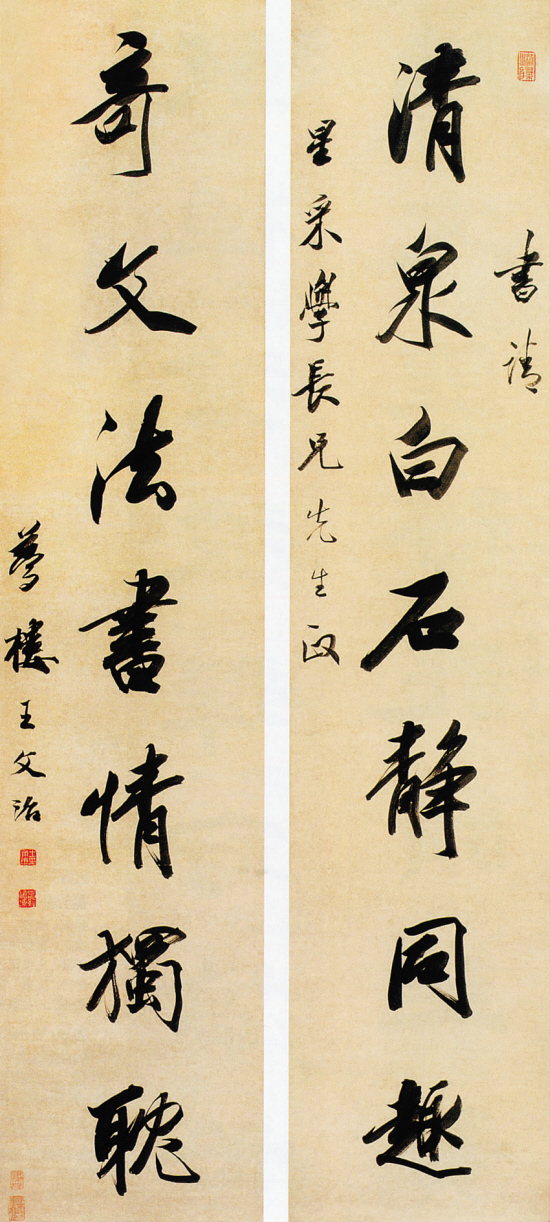 書請
清泉白石靜同趣
星采學長兄先生政
奇文法書情獨耽
夢樓王文治